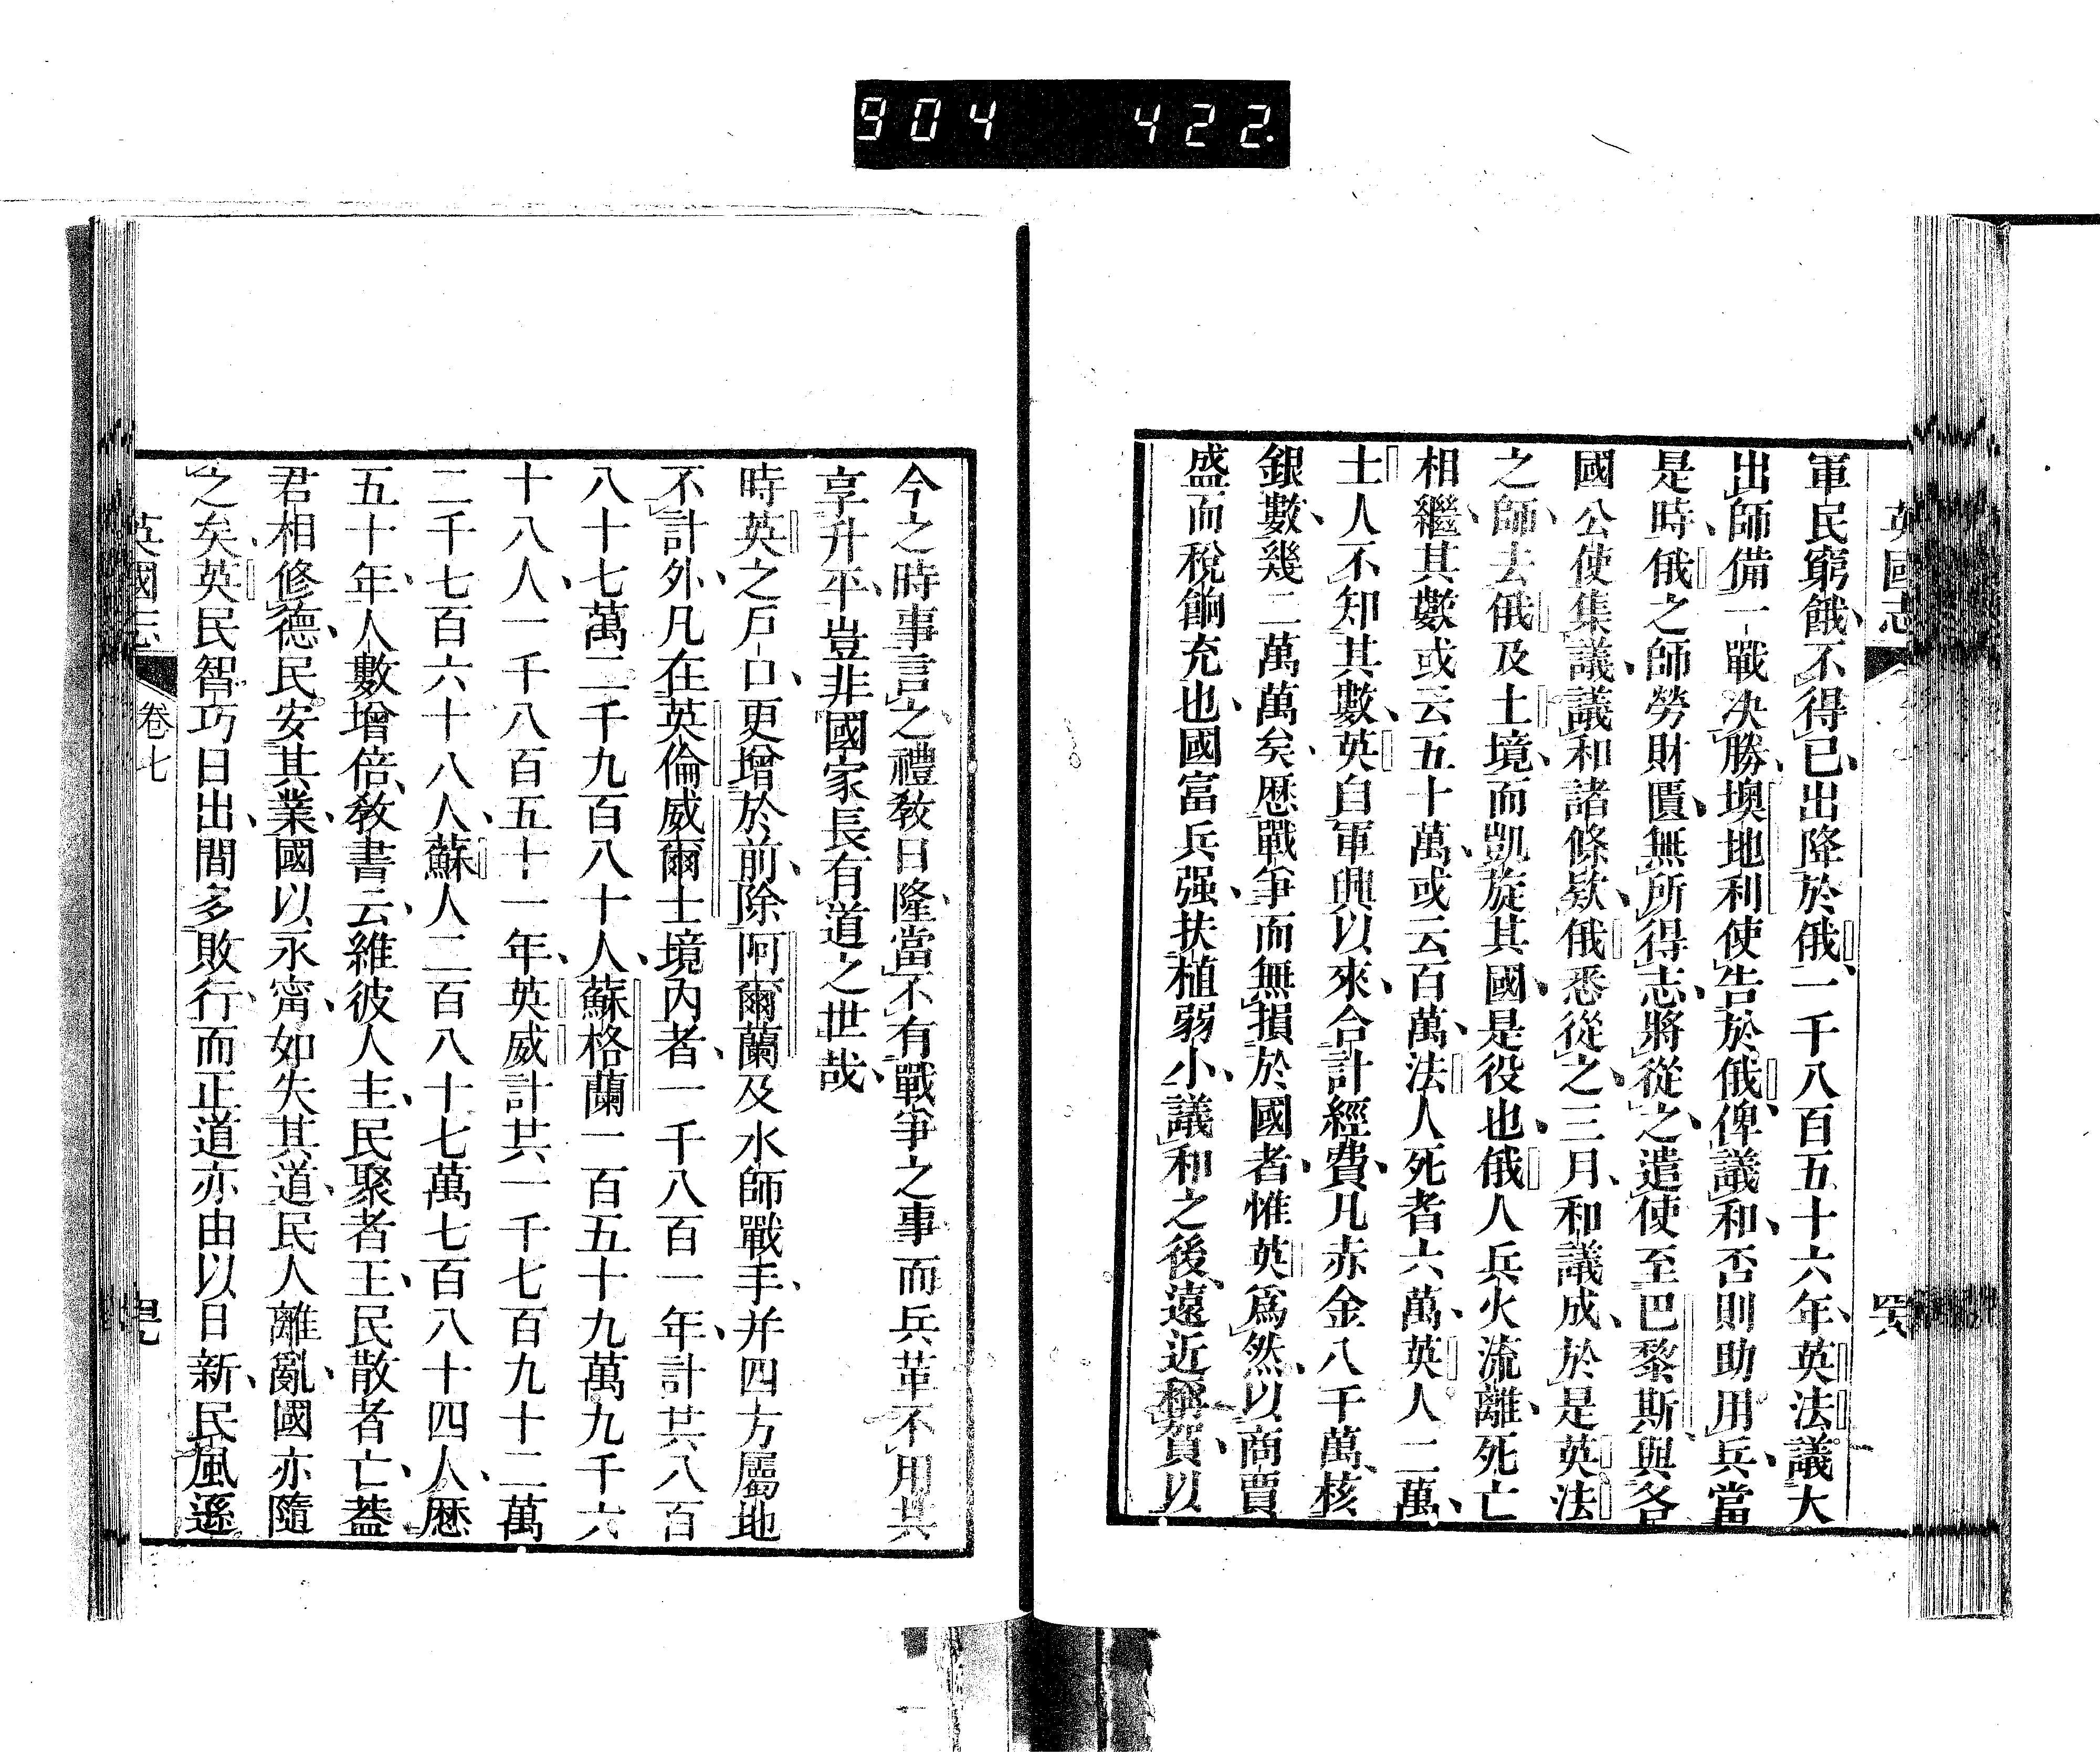 904 422.
英國志
軍民窮餓、不得已、出降於俄、一千八百五十六年、英法議大
出師備一戰決勝、墺地利使告於俄、俾議和、否則助用兵、當
是時、俄之師勞財匱、無所得志、將從之、遣使至巴黎斯、與各
國公使集議、議和諸條欵、俄悉從之、三月、和議成、於是英法
之師、去俄及土境、而凱旋其國、是役也、俄人兵火流離、死亡
相繼、其數或云五十萬、或云百萬、法人死者六萬、英人二萬、
土人不知其數、英自軍興以來、合計經費、凡赤金八千萬、核
銀數、幾二萬萬矣、歷戰爭而無損於國者、惟英爲然、以商賈
盛而稅餉充也、國富兵强、扶植弱小、議和之後、遠近稱賀、以
今之時事言之、禮敎日隆、當不有戰爭之事、而兵革不用、共
享升平、豈非國家長有道之世哉、
時英之戶口、更增於前、除阿爾蘭及水師戰手、并四方屬地
不計外、凡在英倫威爾士境內者、一千八百一年、計共八百
八十七萬二千九百八十人、蘇格蘭一百五十九萬九千六
十八人、一千八百五十一年、英威計共一千七百九十二萬
二千七百六十八人、蘇人二百八十七萬七百八十四人、歷
五十年、人數增倍、敎書云、維彼人主、民聚者王、民散者亡、蓋
君相修德、民安其業、國以永甯、如失其道、民人離亂、國亦隨
之矣、英民智巧日出、間多敗行、而正道亦由以日新、民風遜
英國志
卷七